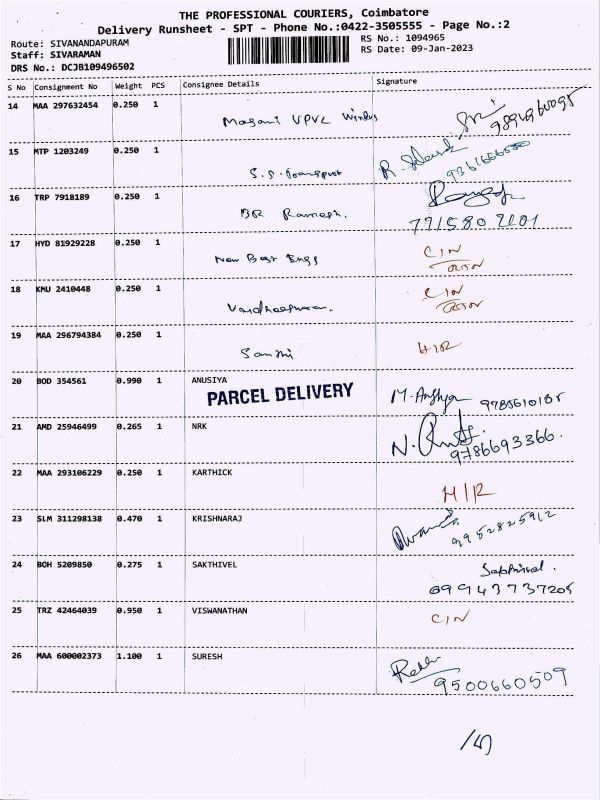 THE PROFESSIONAL COURIERS, Coimbatore
Delivery Runsheet - SPT - Phone No.:0422-3505555 - Page No.:2
Route: SIVANANDAPURAM
Staff: SIVARAMAN
DRS No.: DCJB109496502
RS No.: 1094965
RS Date: 09-Jan-2023
S No Consignment No Weight PCS Consignee Details Signature
14 MAA 297632454 0.250 1
Magami UPVC
15 MTP 1203249 0.250 1
S.S. Transport
16 TRP 7918189 0.250 1
Ramesh.
17 HYD 81929228 0.250 1
New Best Engg CIN
18 KMU 2410448 0.250 1
CIN
19 MAA 296794384 0.250 1
20 BOD 354561 0.990 1 ANUSIYA
PARCEL DELIVERY
21 AMD 25946499 0.265 1 NRK
9786693366.
22 MAA 293106229 0.250 1 KARTHICK
H/R
23 SLM 311298138 0.470 1 KRISHNARAJ
9952825912
24 BOH 5209850 0.275 1 SAKTHIVEL
09943737205
25 TRZ 42464039 0.950 1 VISWANATHAN CIN
26 MAA 600002373 1.100 1 SURESH
9500660509